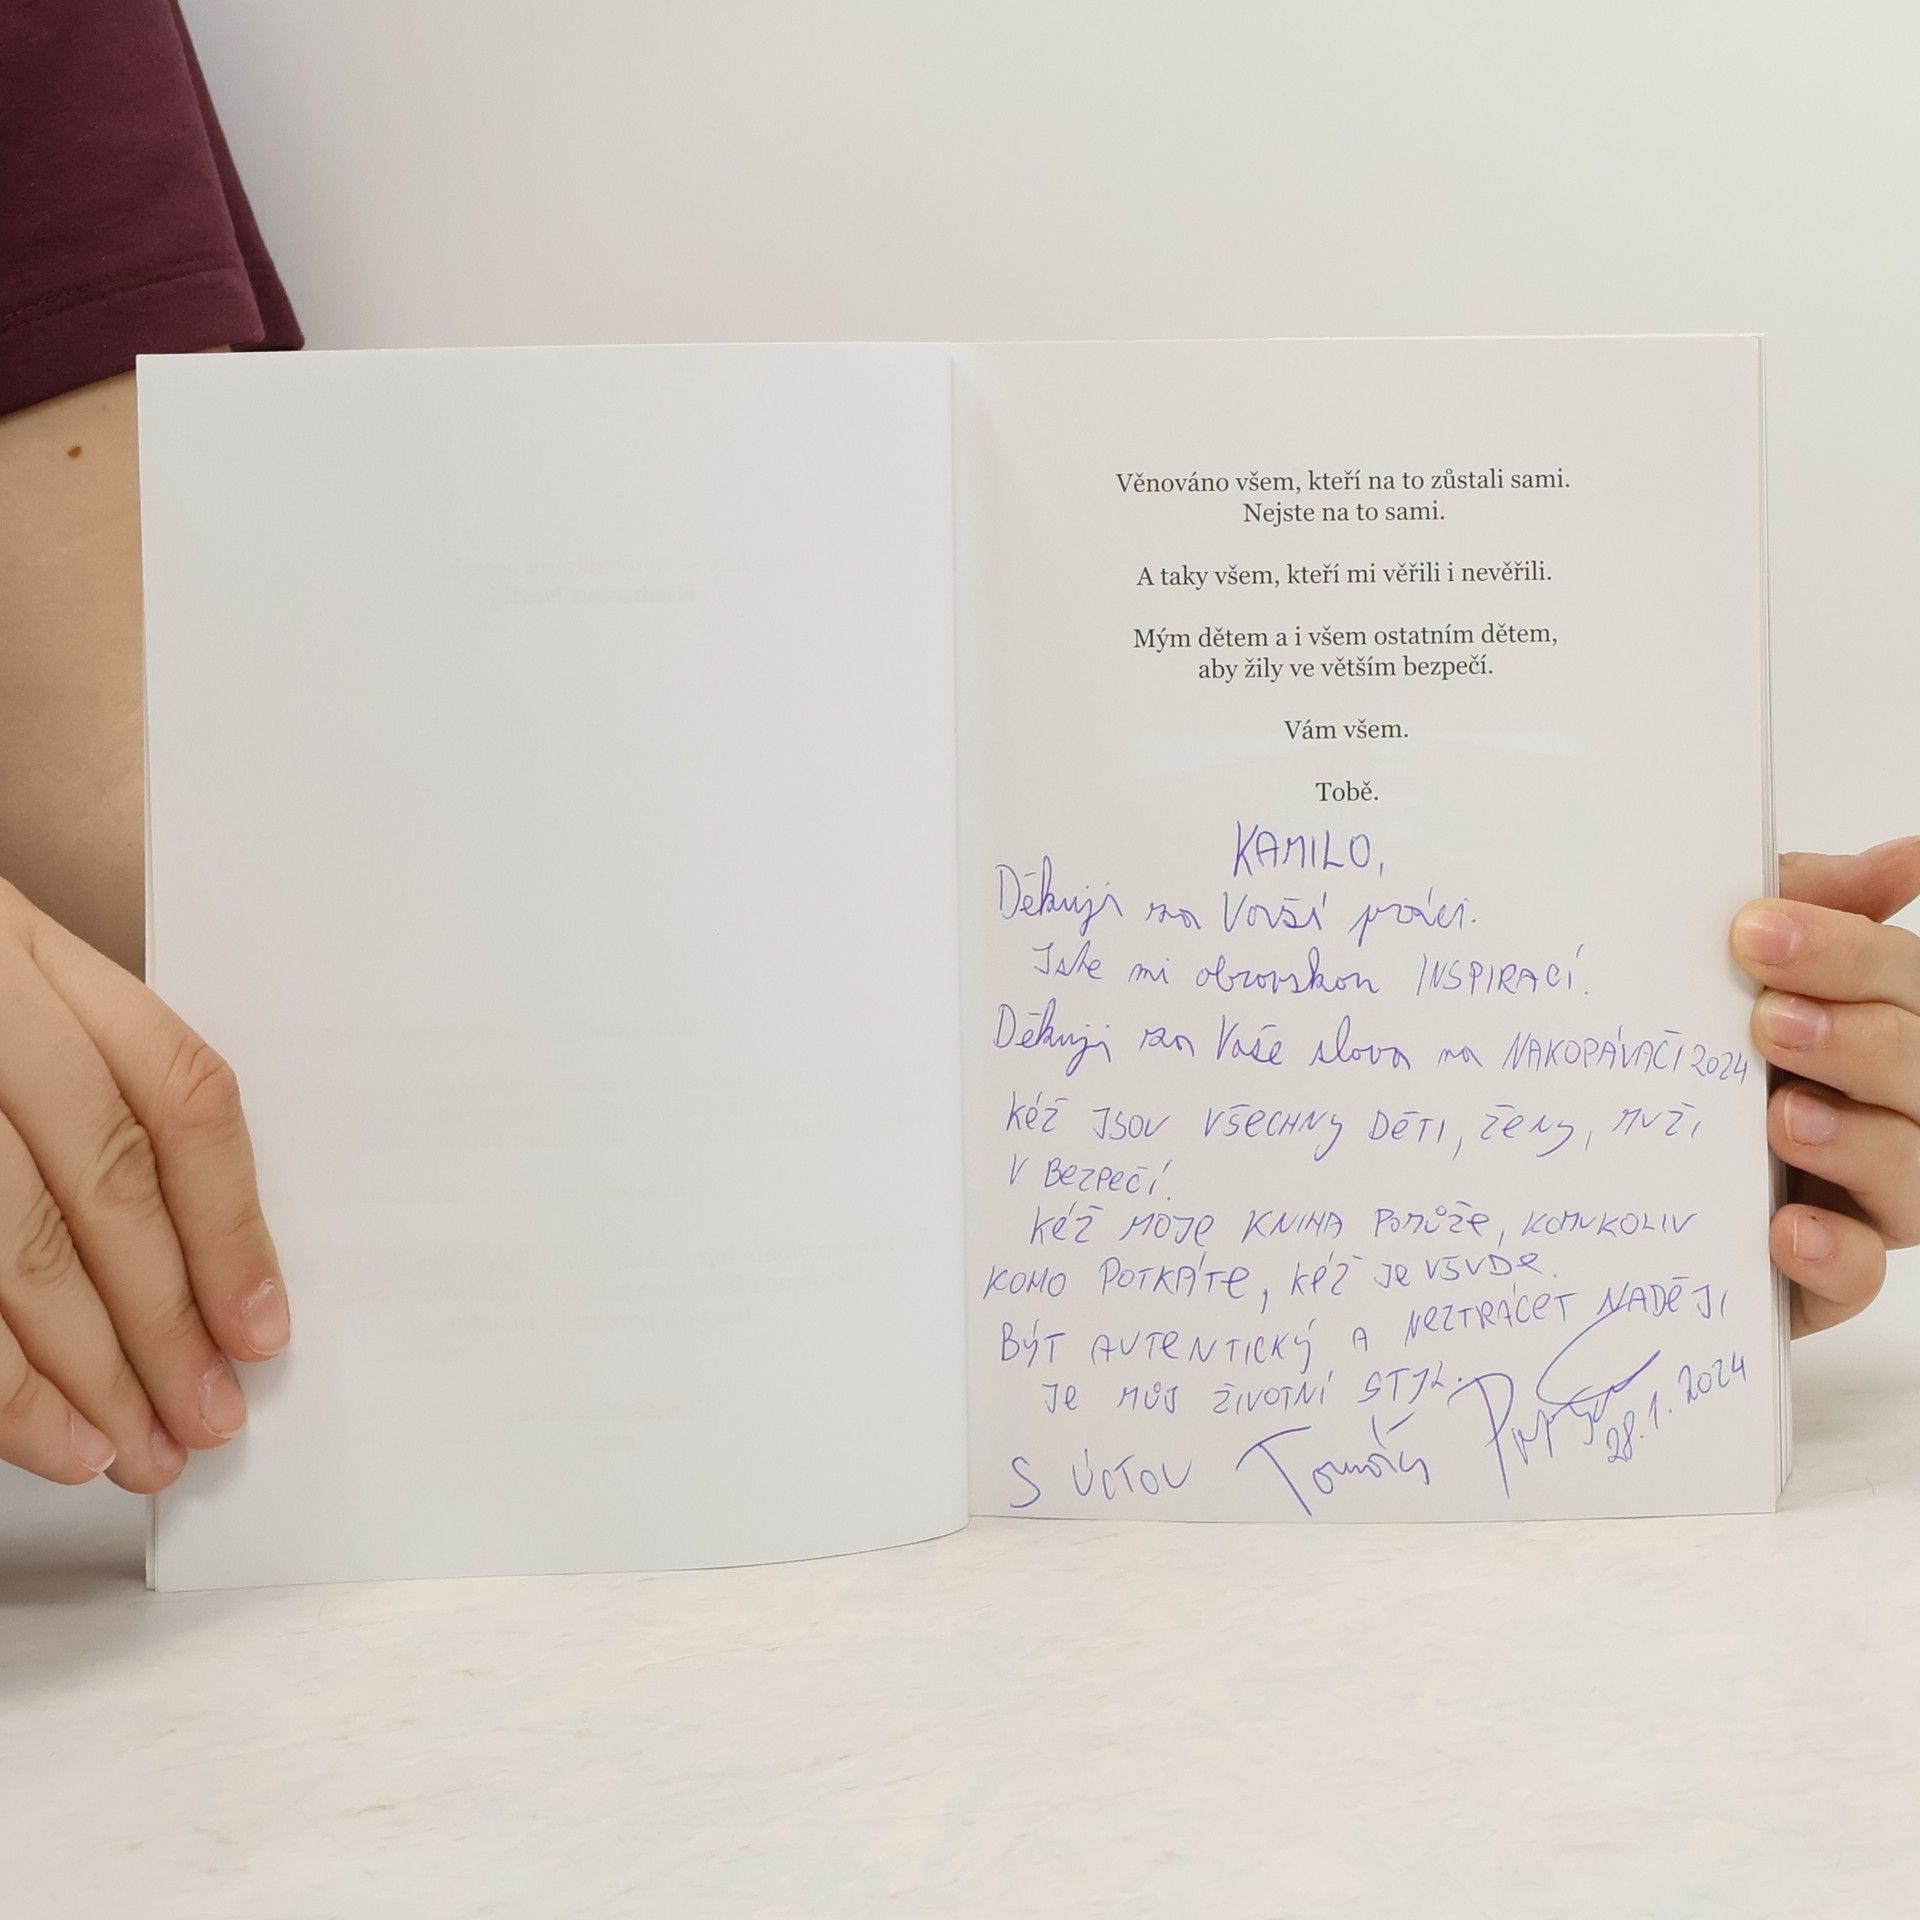 Věnováno všem, kteří na to zůstali sami.
Nejste na to sami.
A taky všem, kteří mi věřili i nevěřili.
Mým dětem a i všem ostatním dětem,
aby žily ve větším bezpečí.
Vám všem.
Tobě.
KAMILO,
Děkuji za Vaší práci.
Jste mi obrovskou INSPIRACÍ.
Děkuji za Vaše slova na NAKOPÁVAČI 2024
KÉŽ JSOU VŠECHNY DĚTI, ŽENY, MUŽI
V BEZPEČÍ.
KÉŽ MOJE KNIHA POMŮŽE, KOMUKOLIV
KOHO POTKÁTE, KÉŽ JE VŠUDE.
BÝT AUTENTICKÝ A NEZTRÁCET NADĚJI
JE MŮJ ŽIVOTNÍ STYL.
28.1.2024
S ÚCTOU Tomáš